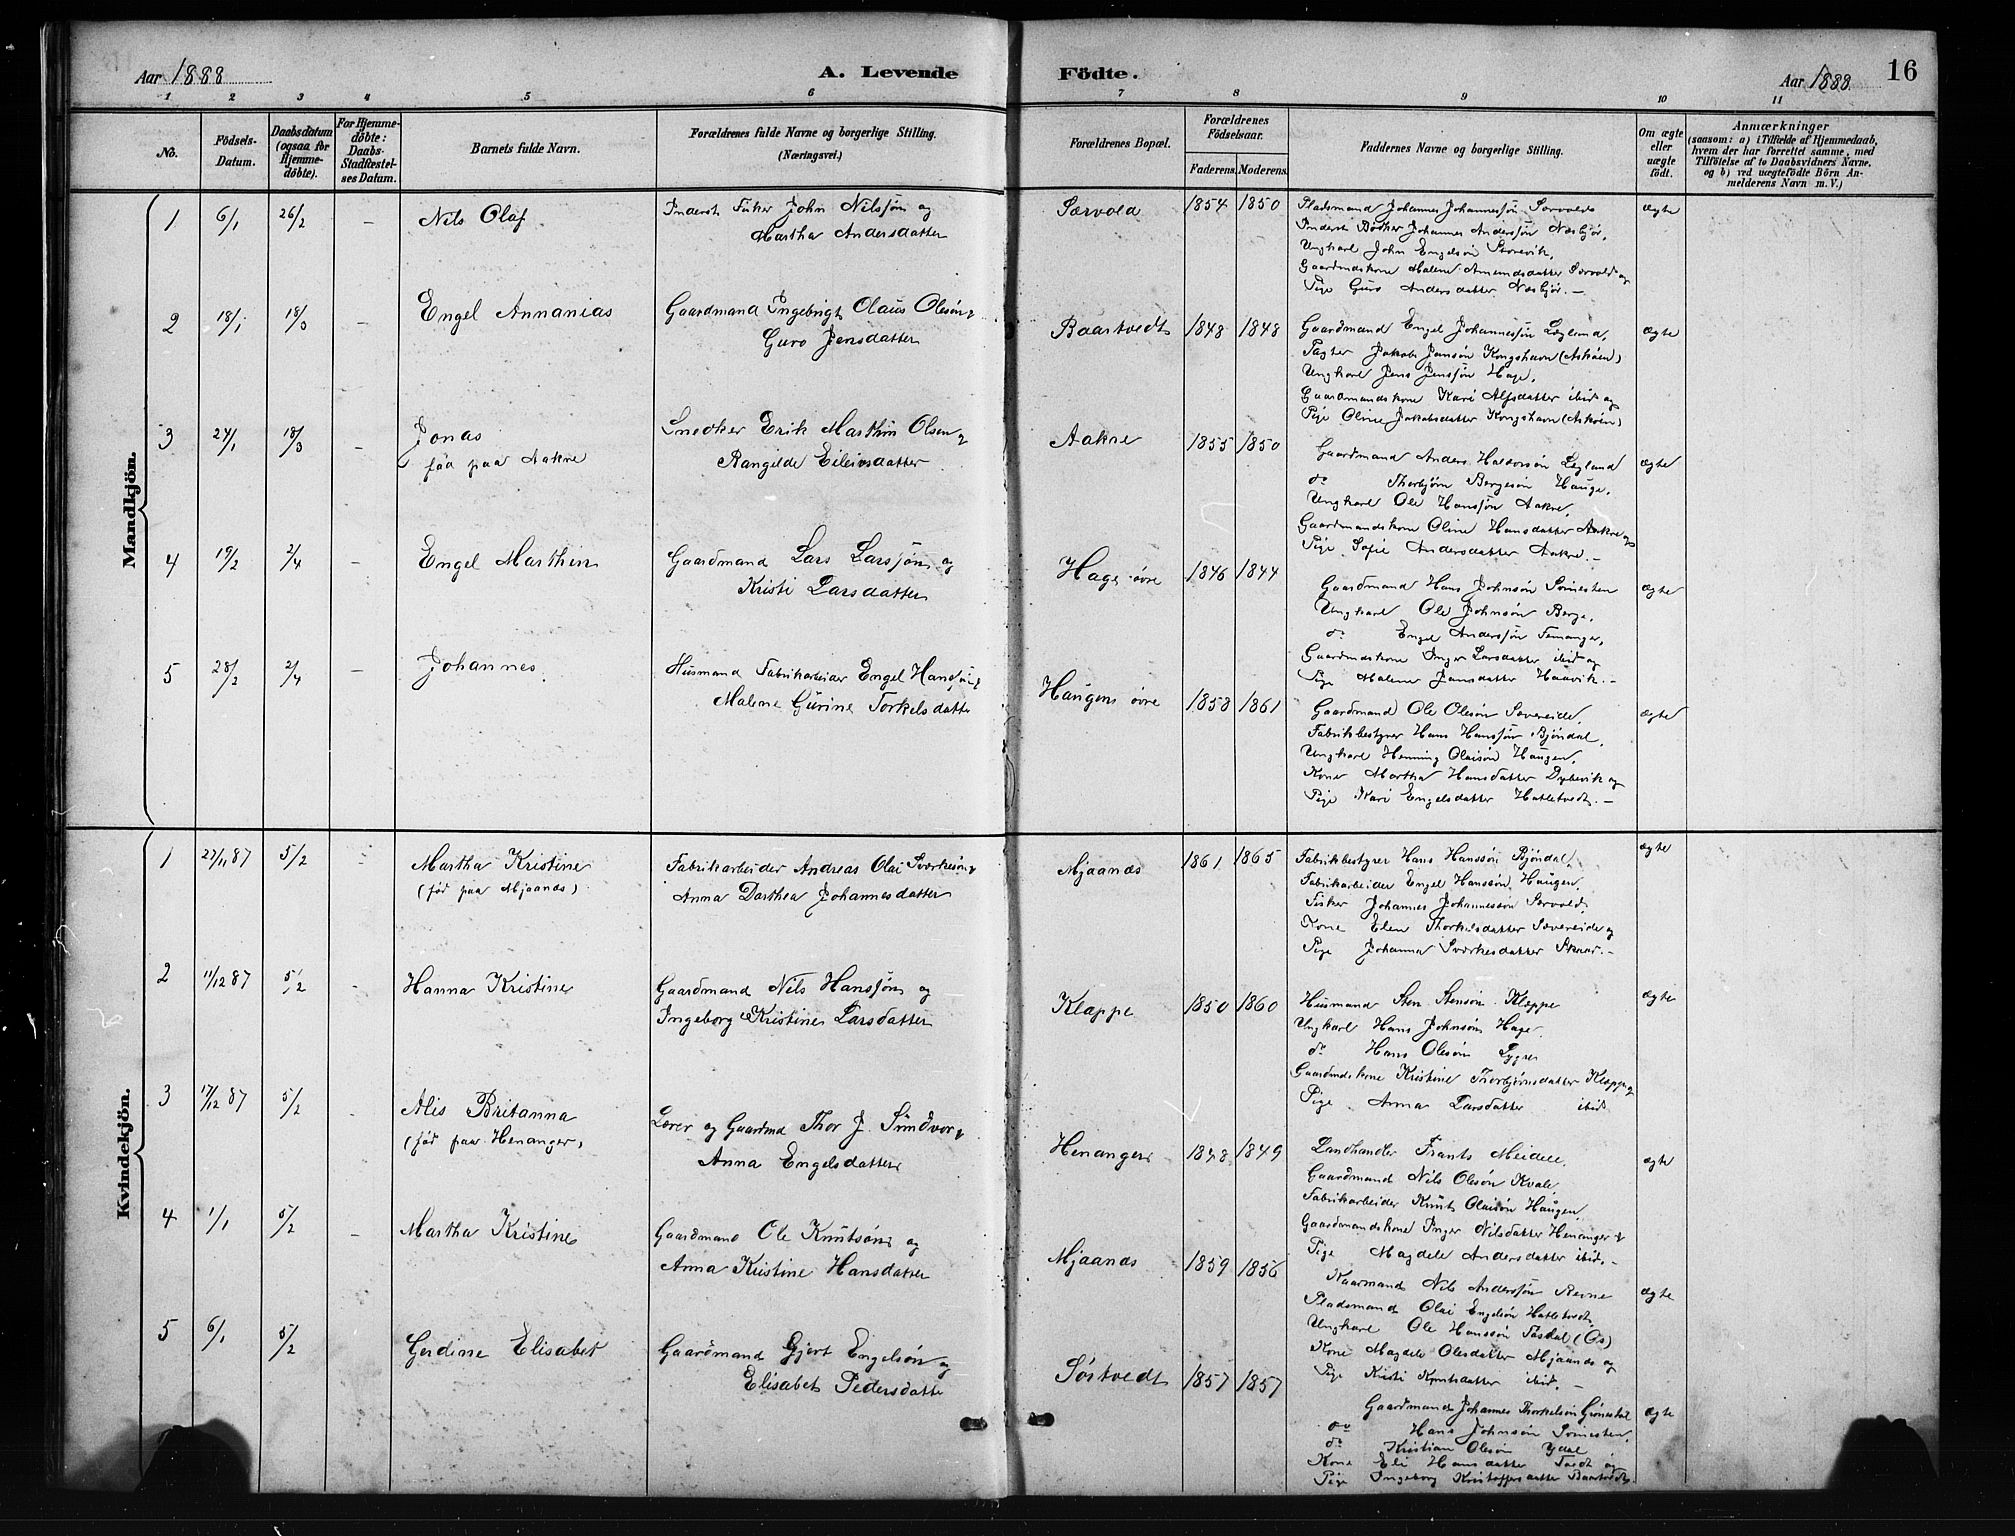 Aar 1888
A. Levende
Födte.
Aar 1888.
16
1 2 3 4 5 6 7 8 9 10 11
No.
Födsels-
Datum.
Daabsdatum
(ogsaa for
Hjemme-
döbte).
For Hjemme-
döbte:
Daabs-
Stadfæstel-
ses Datum.
Barnets fulde Navn.
Forældrenes fulde Navne og borgerlige Stilling.
(Næringsvei.)
Forældrenes Bopæl.
Forældrenes
Födselsaar.
Faderens. Moderens.
Faddernes Navne og borgerlige Stilling.
Om ægte
eller
uægte
födt.
Anmærkninger
(saasom: a) i Tilfælde af Hjemmedaab,
hvem der har forrettet samme, med
Tilföielse af to Daabsvidners Navne,
og b) ved uægtefödte Börn An-
melderens Navn m. V.)
Mandkjön.
1 6/1 26/2 – Nils Olaf
Inderst Fisker John Nilssøn og
Martha Andersdatter
Særvold 1854 1850
Pladsmand Johannes Johannessøn Særvold
Inderst Bødker Johannes Anderssøn Næsbjør,
Ungkarl John Engelsøn Storevik,
Gaardmdskone Malene Amundsdatter Særvold og
Pige Guro Andersdatter Næsbjør. –
ægte
2 18/1 18/3 – Engel Annanias
Gaardmand Ingebrigt Olaus Olesøn &
Guro Jensdatter
Baartvedt 1848 1848
Gaardmand Engel Johannessøn Lægland,
Pagter Jakob Jansøn Kongshavn (Askøen)
Ungkarl Jens Jenssøn Hage,
Gaardmandskone Kari Alfsdatter ibid og
Pige Oline Jakobsdatter Kongshavn (Askøen)
ægte
3 24/1 18/3 – Jonas
fød paa Aakre
Snedker Erik Marthin Olsen &
Rangilde Eileivsdatter
Aakre 1855 1850
Gaardmand Anders Halvorsøn Legland
do Thorbjørn Bergesøn Hauge,
Ungkarl Ole Hanssøn Aakre,
Gaardmandskone Oline Hansdatter Aakre og
Pige Sofie Andersdatter Aakre. –
ægte
4 19/2 2/4 – Engel Marthin
Gaardmand Lars Larssøn og
Kristi Larsdatter
Hage øvre 1846 1844
Gaardmand Hans Johnsøn
Ungkarl Ole Johnsøn Berge,
do Engel Anderssøn
Gaardmdskone Inger Larsdatter ibid og
Pige Malene Jansdatter Haavik. –
ægte
5 28/2 2/4 – Johannes.
Husmand Fabrikarbeider Engel Hanssøn &
Malene Gurine Torkelsdatter
Haugen øvre 1858 1861
Gaardmand Ole Olesøn Sævereide,
Fabrikbestyrer Hans Hanssøn Bjöndal,
Ungkarl Henning Olaisøn Haugen,
Kone Martha Hansdatter Dybevik og
Pige Kari Engelsdatter Hatletvedt. –
ægte
Kvindekjön.
1 27/11 87 5/2 – Martha Kristine
(fød paa Mjaanæs)
Fabrikarbeider Andreas Olai Sværkesøn &
Anna Dorthea Johannesdatter
Mjaanæs 1861 1865
Fabrikbestyrer Hans Hanssøn Bjöndal,
Fabrikarbeider Engel Hanssøn Haugen,
Fisker Johannes Johannessøn Særvold,
Kone Elen Thorkelsdatter Sævereide og
Pige Johanna Sværkesdatter Skaar. –
ægte
2 11/12 87 5/2 – Hanna Kristine
Gaardmand Nils Hanssøn og
Ingeborg Kristine Larsdatter
Kleppe 1850 1860
Husmand Sten Stensøn Kleppe
Ungkarl Hans Johnsøn Hage
do Hans Olesøn Lygre
Gaardmdskone Kristine Thorbjørnsdatter Kleppe &
Pige Anna Larsdatter ibid
ægte
3 17/12 87 5/2 – Alis Britanna
(fød paa Henanger)
Lærer og Gaardmd Thor J. Sundvor &
Anna Engelsdatter
Henanger 1848 1849
Landhandler Frants Meidell,
Gaardmand Nils Olesøn Kvale,
Fabrikarbeider Knut Olaisøn Haugen,
Gaardmandskone Inger Nilsdatter Henanger &
Pige Magdele Andersdatter ibid. –
ægte
4 1/1 5/2 – Martha Kristine
Gaardmand Ole Knutsøn og
Anna Kristine Hansdatter
Mjaanæs 1859 1856
Kaarmand Nils Anderssøn Revne
Pladsmand Olai Engelsøn Hatletvedt,
Ungkarl Ole Hanssøn (Os)
Kone Magdele Olesdatter Mjaanæs og
Pige Kristi Knutsdatter ibid. –
ægte
5 6/1 5/2 Gerdine Elisabet
Gaardmand Gjert Engelsøn og
Elisabet Pedersdatter
Søstvedt 1857 1857
Gaardmand Johannes Thorkelsøn Grønestøl
do Hans Johnsøn
do Kristian Olesøn Ydal
Kone Eli Hansdatter og
Pige Ingeborg Kristoffersdatter Baartvedt.
ægte